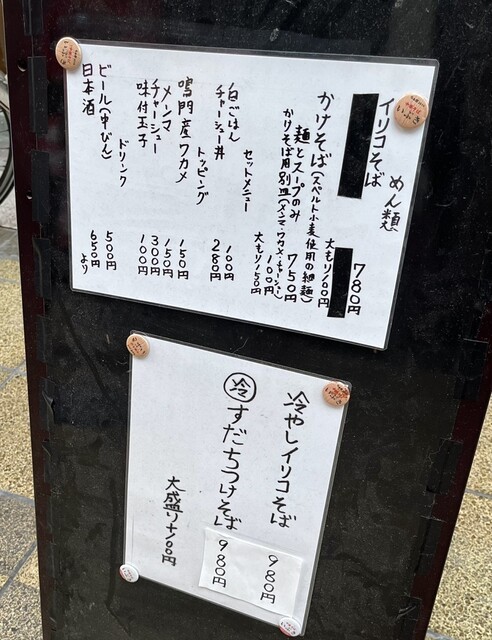 めん類
イリコそば 780円
大もり100円
かけそば(スペルト小麦使用の細麺) 750円
麺とスープのみ
かけそば用別皿(メンマ・ワカメ・チャーシュー) 100円
大もり150円
セットメニュー
白ごはん 100円
チャーシュー丼 280円
トッピング
鳴門産ワカメ 150円
メンマ 150円
チャーシュー 300円
味付玉子 100円
ドリンク
ビール(中びん) 500円
日本酒 650円より
冷やしイリコそば 980円
冷 すだちつけそば 980円
大盛り+100円